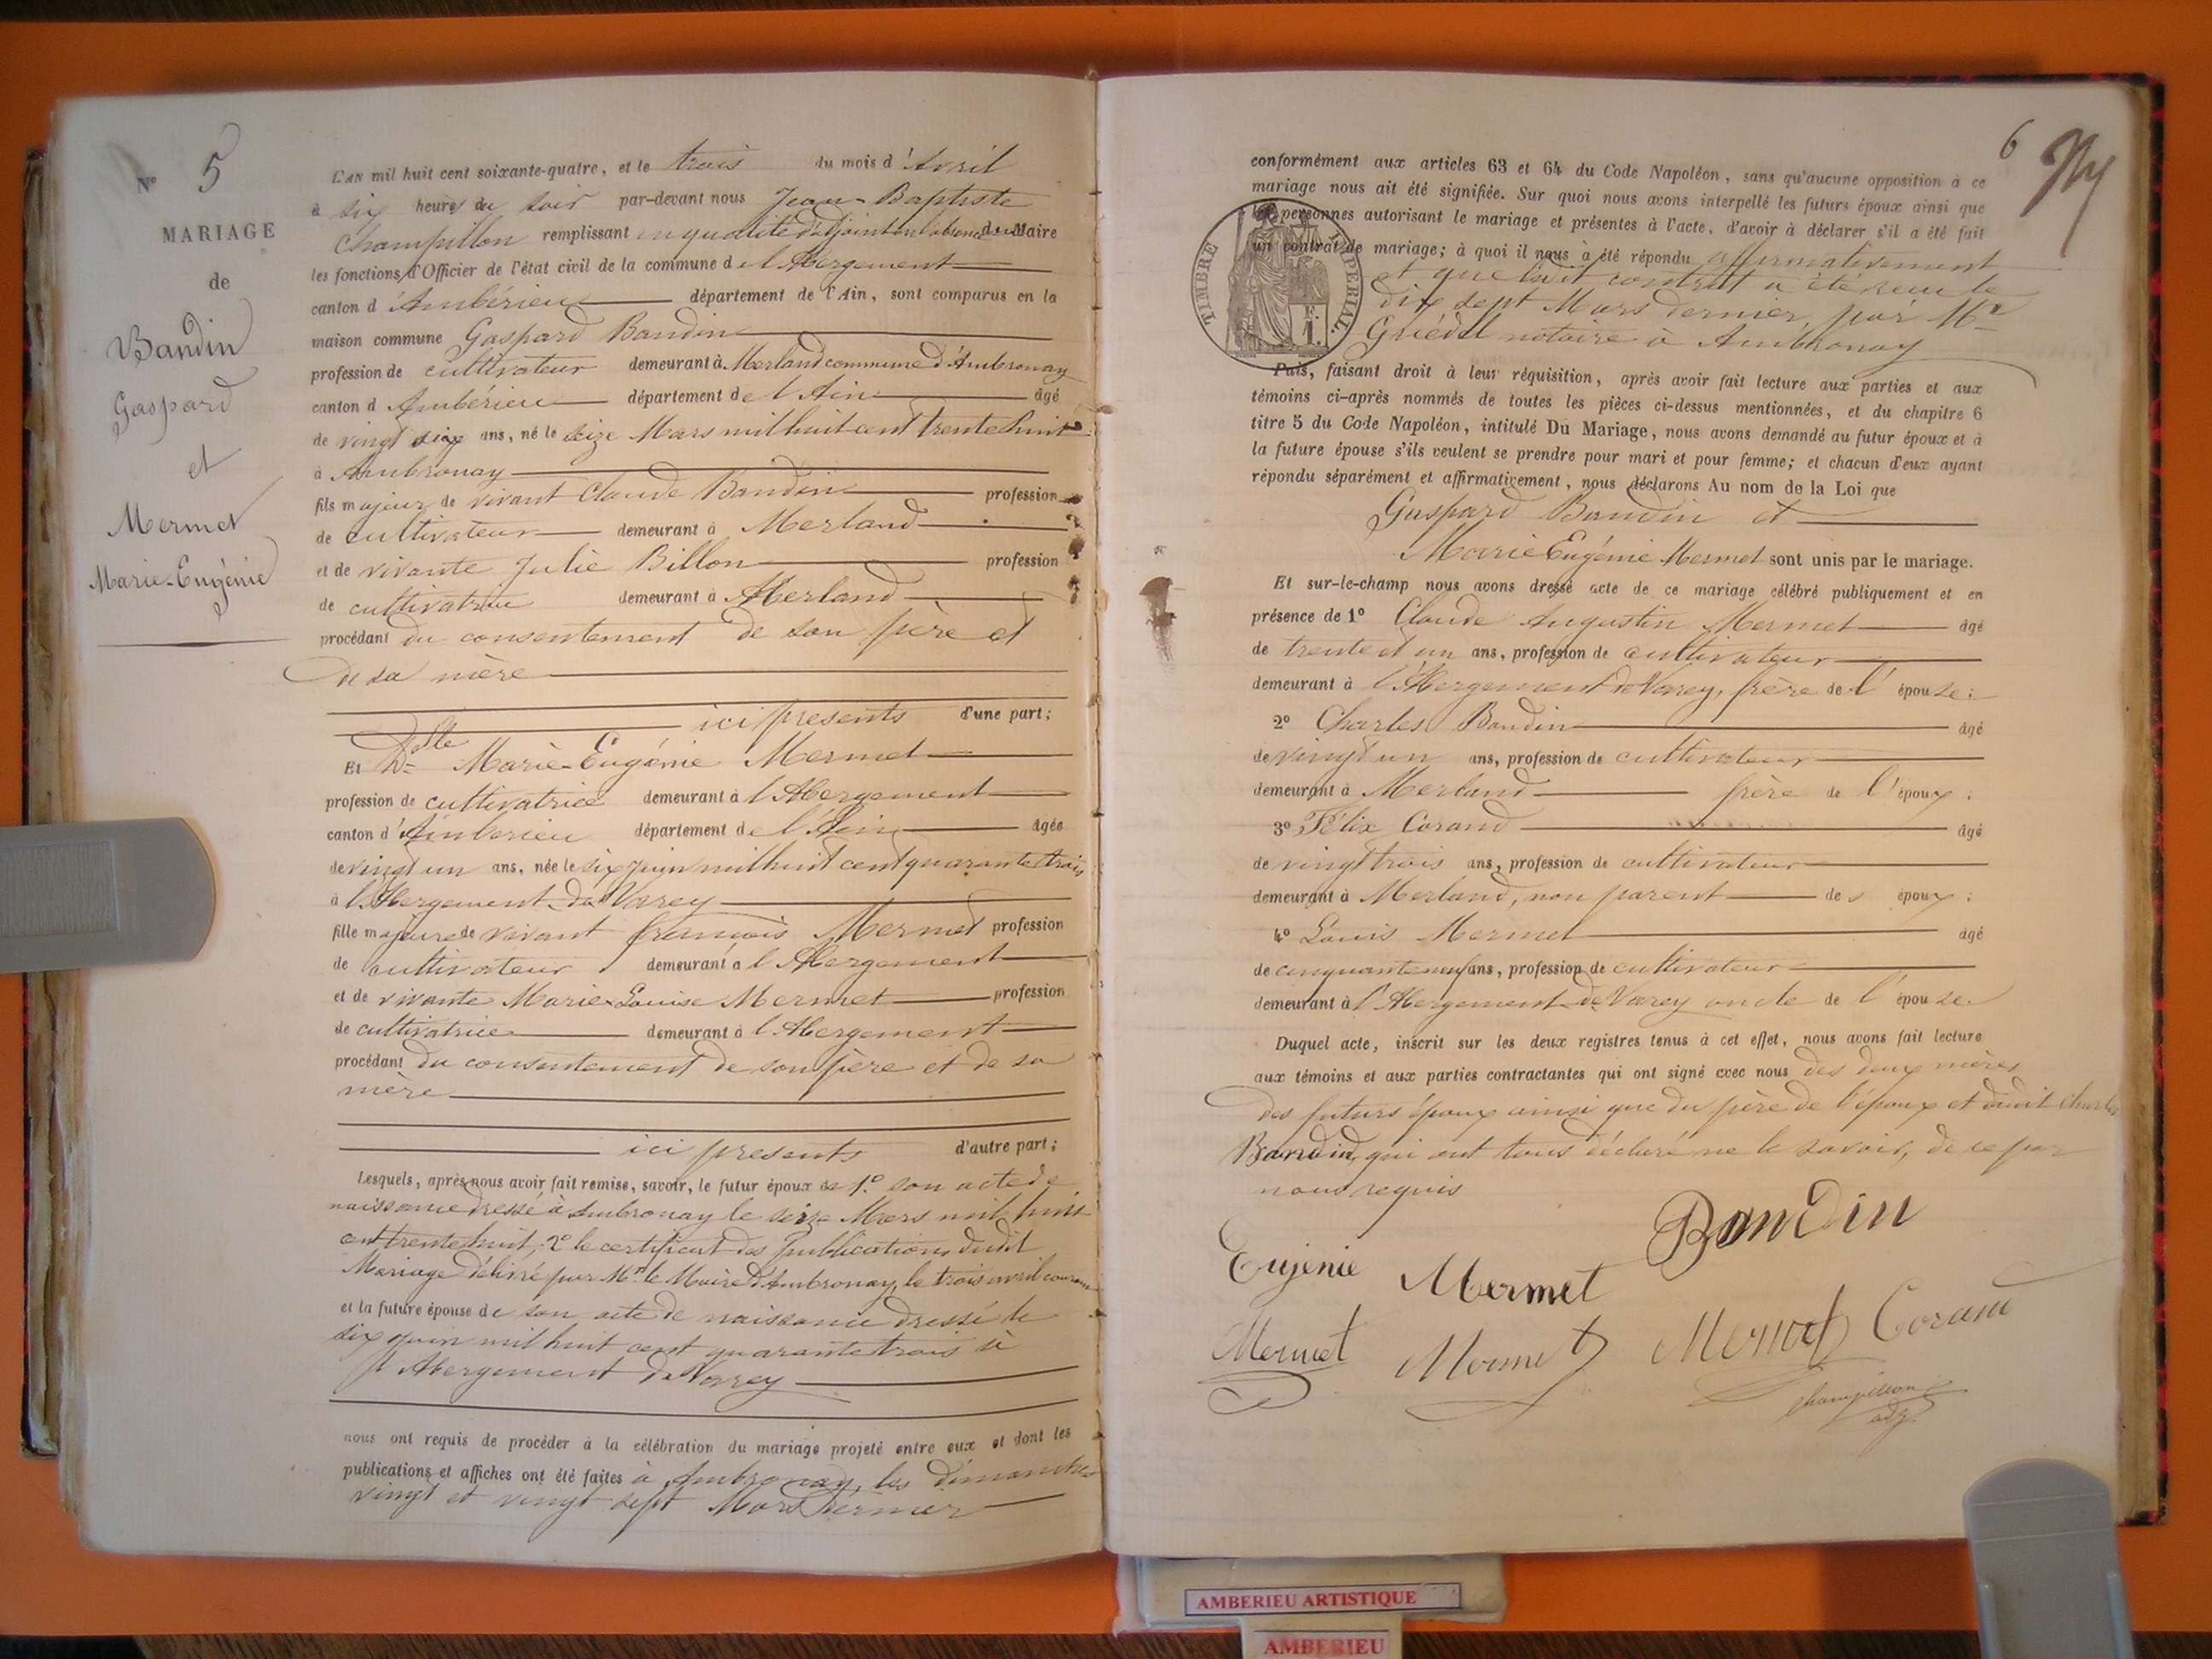 N° 5
MARIAGE
de
Bandin
Gaspard
et
Mermet
Marie-Eugénie
L'AN mil huit cent soixante-quatre, et le trois du mois d'Avril
à six heures du soir par-devant nous Jean-Baptiste
Champillon remplissant en qualité d'adjoint en l'absence du Maire
les fonctions d'Officier de l'état civil de la commune de l'Abergement
canton d'Ambérieu département de l'Ain, sont comparus en la
maison commune Gaspard Bandin
profession de cultivateur demeurant à Merland commune d'Ambronay
canton d Ambérieu département de l'Ain âgé
de vingt six ans, né le seize Mars mil huit cent trente huit
à Ambronay
fils majeur de vivant Claude Bandin profession
de cultivateur demeurant à Merland
et de vivante Julie Billon profession
de cultivatrice demeurant à Merland
procédant du consentement de son père et
de sa mère
ici présents d'une part;
Et Dlle Marie-Eugénie Mermet
profession de cultivatrice demeurant à l'Abergement
canton d'Ambérieu département de l'Ain âgée
de vingt un ans, née le six juin mil huit cent quarante trois
à l'Abergement-de-Varey
fille majeure de vivant françois Mermet profession
de cultivateur demeurant à l'Abergement
et de vivante Marie-Louise Mermet profession
de cultivatrice demeurant à l'Abergement
procédant du consentement de son père et de sa
mère
ici présents d'autre part;
Lesquels, après nous avoir fait remise, savoir, le futur époux de 1° son acte de
naissance dressé à Ambronay le seize Mars mil huit
cent trente huit, 2° le certificat des publications dudit
Mariage délivré par Mr le Maire d'Ambronay, le trois avril courant
et la future épouse de son acte de naissance dressé le
six juin mil huit cent quarante trois à
l'Abergement de Varey
nous ont requis de procéder à la célébration du mariage projeté entre eux et dont les
publications et affiches ont été faites à Ambronay, les dimanches
vingt et vingt sept Mars dernier
6
conformément aux articles 63 et 64 du Code Napoléon, sans qu'aucune opposition à ce
mariage nous ait été signifiée. Sur quoi nous avons interpellé les futurs époux ainsi que
les personnes autorisant le mariage et présentes à l'acte, d'avoir à déclarer s'il a été fait
un contrat de mariage; à quoi il nous a été répondu affirmativement
et que ledit contrat a été reçu le
dix sept Mars dernier par Me
notaire à Ambronay
TIMBRE IMPERIAL.
F.
1.
Puis, faisant droit à leur réquisition, après avoir fait lecture aux parties et aux
témoins ci-après nommés de toutes les pièces ci-dessus mentionnées, et du chapitre 6
titre 5 du Code Napoléon, intitulé Du Mariage, nous avons demandé au futur époux et à
la future épouse s'ils veulent se prendre pour mari et pour femme; et chacun d'eux ayant
répondu séparément et affirmativement, nous déclarons Au nom de la Loi que
Gaspard Bandin et
Marie Eugénie Mermet sont unis par le mariage.
Et sur-le-champ nous avons dressé acte de ce mariage célébré publiquement et en
présence de 1° Claude Augustin Mermet âgé
de trente et un ans, profession de cultivateur
demeurant à l'Abergement de Varey, frère de l'épouse;
2° Charles Bandin âgé
de vingt un ans, profession de cultivateur
demeurant à Merland frère de l'époux;
3° Félix Corand âgé
de vingt trois ans, profession de cultivateur
demeurant à Merland, non parent des époux;
4° Louis Mermet âgé
de cinquante neuf ans, profession de cultivateur
demeurant à l'Abergement-de-Varey oncle de l'épouse.
Duquel acte, inscrit sur les deux registres tenus à cet effet, nous avons fait lecture
aux témoins et aux parties contractantes qui ont signé avec nous des deux mères
des futurs époux ainsi que du père de l'époux et dudit Charles
Bandin, qui ont tous déclaré ne le savoir, de ce par
nous requis
Bandin
Eugénie Mermet
Mermet Mermet Mermet Corand
Champillon
adj.
AMBERIEU ARTISTIQUE
AMBERIEU